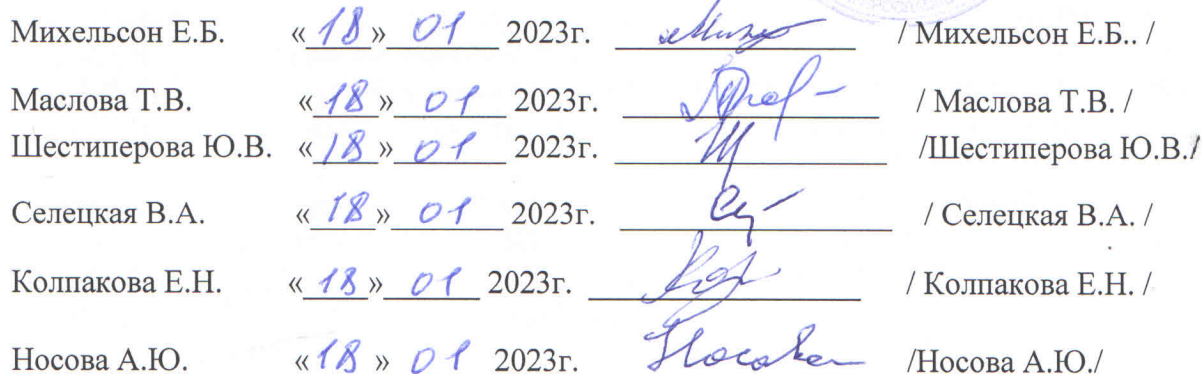 Михельсон Е.Б. «18» 01 2023г. / Михельсон Е.Б.. /
Маслова Т.В. «18» 01 2023г. / Маслова Т.В. /
Шестиперова Ю.В. «18» 01 2023г. /Шестиперова Ю.В./
Селецкая В.А. «18» 01 2023г. / Селецкая В.А. /
Колпакова Е.Н. «18» 01 2023г. / Колпакова Е.Н. /
Носова А.Ю. «18» 01 2023г. /Носова А.Ю./